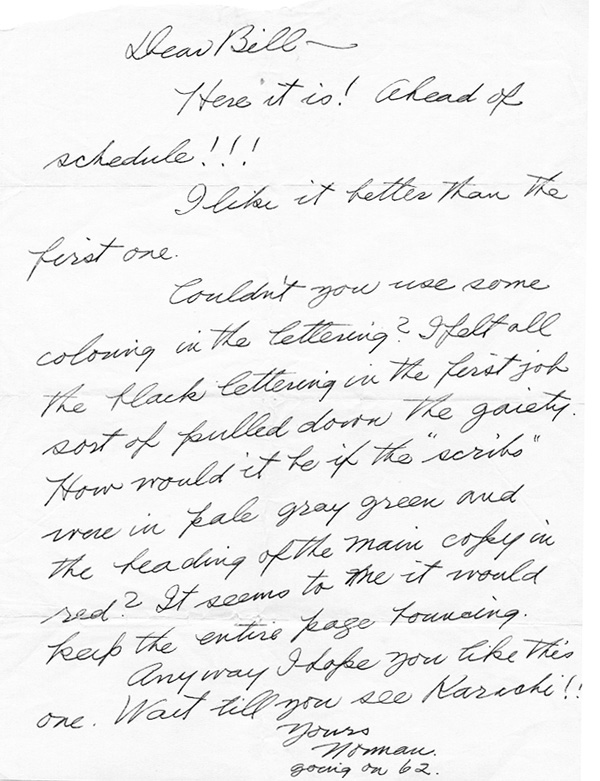 Dear Bill —
Here it is! Ahead of
schedule!!!
I like it better than the
first one.
Couldn't you use some
coloring in the lettering? I felt all
the black lettering in the first job
sort of pulled down the gaiety.
How would it be if the "scribs"
were in pale gray green and
the heading of the main copy in
red? It seems to me it would
keep the entire page bouncing.
Anyway I hope you like this
one. Wait till you see Karachi!!
Yours
Norman.
going on 62.